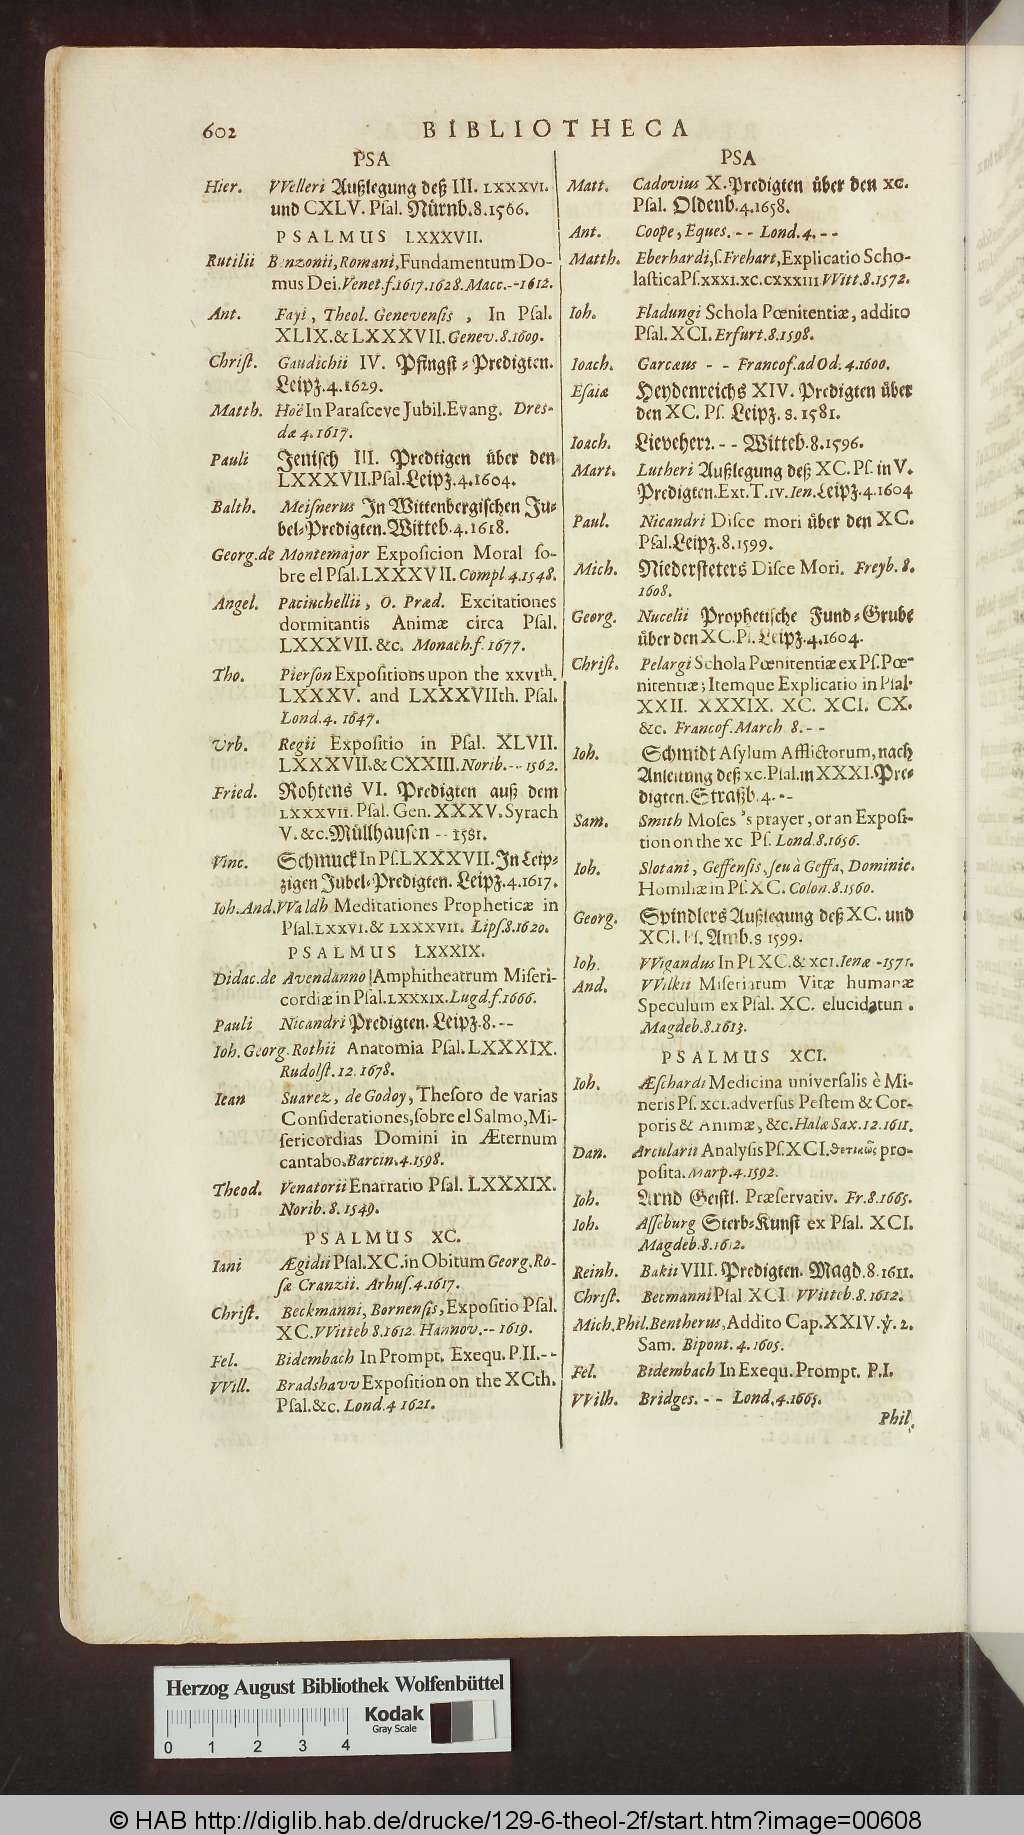 602
BIBLIOTHECA
PSA
Hier. VVelleri Außlegung deß III. LXXXVI.
und CXLV. Pſal. Nürnb.8.1566.
PSALMUS LXXXVII.
Rutilii Benzonii, Romani, Fundamentum Do-
mus Dei. Venet.f.1617.1628. Macc.--1612.
Ant. Fayi, Theol. Genevenſis, In Pſal.
XLIX.&LXXXVII. Genev.8.1609.
Chriſt. Gaudichii IV. Pfingſt-Predigten.
Leipz.4.1629.
Matth. Hoë In Paraſceve Jubil.Evang. Dres-
dæ 4.1617.
Pauli Jeniſch III. Predtigen über den
LXXXVII.Pſal.Leipz.4.1604.
Balth. Meiſnerus In Wittenbergiſchen Ju-
bel-Predigten.Witteb.4.1618.
Georg.de Montemajor Expoſicion Moral ſo-
bre el Pſal.LXXXVII. Compl 4.1548.
Angel. Paciuchellii, O. Præd. Excitationes
dormitantis Animæ circa Pſal.
LXXXVII.&c. Monach.f.1677.
Tho. Pierſon Expoſitions upon the XXVIth.
LXXXV. and LXXXVIIth. Pſal.
Lond.4. 1647.
Urb. Regii Expoſitio in Pſal. XLVII.
LXXXVII.&CXXIII. Norib.--1562.
Fried. Rohtens VI. Predigten auß dem
LXXXVII. Pſal. Gen. XXXV. Syrach
V. &c. Müllhauſen -- 1581.
Vinc. Schmuck In Pſ.LXXXVII. In Leip-
zigen Jubel-Predigten. Leipz.4.1617.
Ioh.And.VValdh Meditationes Propheticæ in
Pſal.LXXVI.& LXXXVII. Lipſ.8.1620.
PSALMUS LXXXIX.
Didac.de Avendanno Amphitheatrum Miſeri-
cordiæ in Pſal.LXXXIX. Lugd.f.1666.
Pauli Nicandri Predigten. Leipz.8.--
Ioh. Georg. Rothii Anatomia Pſal.LXXXIX.
Rudolſt.12.1678.
Iean Suarez, de Godoy, Theſoro de varias
Conſiderationes,ſobre el Salmo, Mi-
ſericordias Domini in Æternum
cantabo. Barcin.4.1598.
Theod. Venatorii Enarratio Pſal. LXXXIX.
Norib.8.1549.
PSALMUS XC.
Iani Ægidii Pſal.XC.in Obitum Georg.Ro-
ſæ Cranzii. Arhuſ.4.1617.
Chriſt. Beckmanni, Bornenſis, Expoſitio Pſal.
XC. VVitteb 8.1612. Hannov.--1619.
Fel. Bidembach In Prompt. Exequ. P.II.--
VVill. Bradshavv Expoſition on the XCth.
Pſal.&c. Lond.4 1621.
PSA
Matt. Cadovius X. Predigten über den XC.
Pſal. Oldenb.4.1658.
Ant. Coope, Eques. -- Lond.4.--
Matth. Eberhardi,ſ.Frehart, Explicatio Scho-
laſtica Pſ.XXXI.XC.CXXXIII. VVitt.8.1572.
Ioh. Fladungi Schola Pœnitentiæ, addito
Pſal. XCI. Erfurt.8.1598.
Ioach. Garcæus -- Francof.ad Od.4.1600.
Eſaiæ Heydenreichs XIV. Predigten über
den XC. Pſ. Leipz.8.1581.
Ioach. Lieveherz. -- Witteb.8.1596.
Mart. Lutheri Außlegung deß XC. Pſ. in V.
Predigten.Ext.T.IV. Ien. Leipz.4.1604
Paul. Nicandri Diſce mori über den XC.
Pſal.Leipz.8.1599.
Mich. Niederſteters Diſce Mori. Freyb. 8.
1608.
Georg. Nucelii Prophetiſche Fund-Grube
über den XC.Pſ. Leipz.4.1604.
Chriſt. Pelargi Schola Pœnitentiæ ex Pſ.Pœ-
nitentiæ; Itemque Explicatio in Pſal.
XXII. XXXIX. XC. XCI. CX.
&c. Francof.March 8.--
Ioh. Schmidt Aſylum Afflictorum, nach
Anleitung deß XC.Pſal.in XXXI.Pre-
digten.Straßb.4.--
Sam. Smith Moſes 's prayer, or an Expoſi-
tion on the XC Pſ. Lond.8.1656.
Ioh. Slotani, Geffenſis, ſeu à Geffa, Dominic.
Homiliæ in Pſ.XC. Colon.8.1560.
Georg. Spindlers Außlegung deß XC. und
XCI. Pſ. Amb.8 1599.
Ioh. VVigandus In Pſ XC.& XCI. Ienæ -1571.
And. VVilkii Miſeriarum Vitæ humanæ
Speculum ex Pſal. XC. elucidatum.
Magdeb.8.1613.
PSALMUS XCI.
Ioh. Æſchardi Medicina univerſalis è Mi-
neris Pſ.XCI.adverſus Peſtem & Cor-
poris & Animæ, &c. Halæ Sax.12.1611.
Dan. Arcularii Analyſis Pſ.XCI. θετικῶς pro-
poſita. Marp.4.1592.
Ioh. Arnd Geiſtl. Præſervativ. Fr.8.1665.
Ioh. Aſſeburg Sterb-Kunſt ex Pſal. XCI.
Magdeb.8.1612.
Reinh. Bakii VIII. Predigten. Magd.8.1611.
Chriſt. Becmanni Pſal XCI. VVitteb.8.1612.
Mich.Phil.Bentherus, Addito Cap.XXIV.℣.2.
Sam. Bipont.4.1605.
Fel. Bidembach In Exequ. Prompt. P.I.
VVilh. Bridges. -- Lond.4.1665.
Phil.
Herzog August Bibliothek Wolfenbüttel
Kodak
Gray Scale
0 1 2 3 4
© HAB http://diglib.hab.de/drucke/129-6-theol-2f/start.htm?image=00608